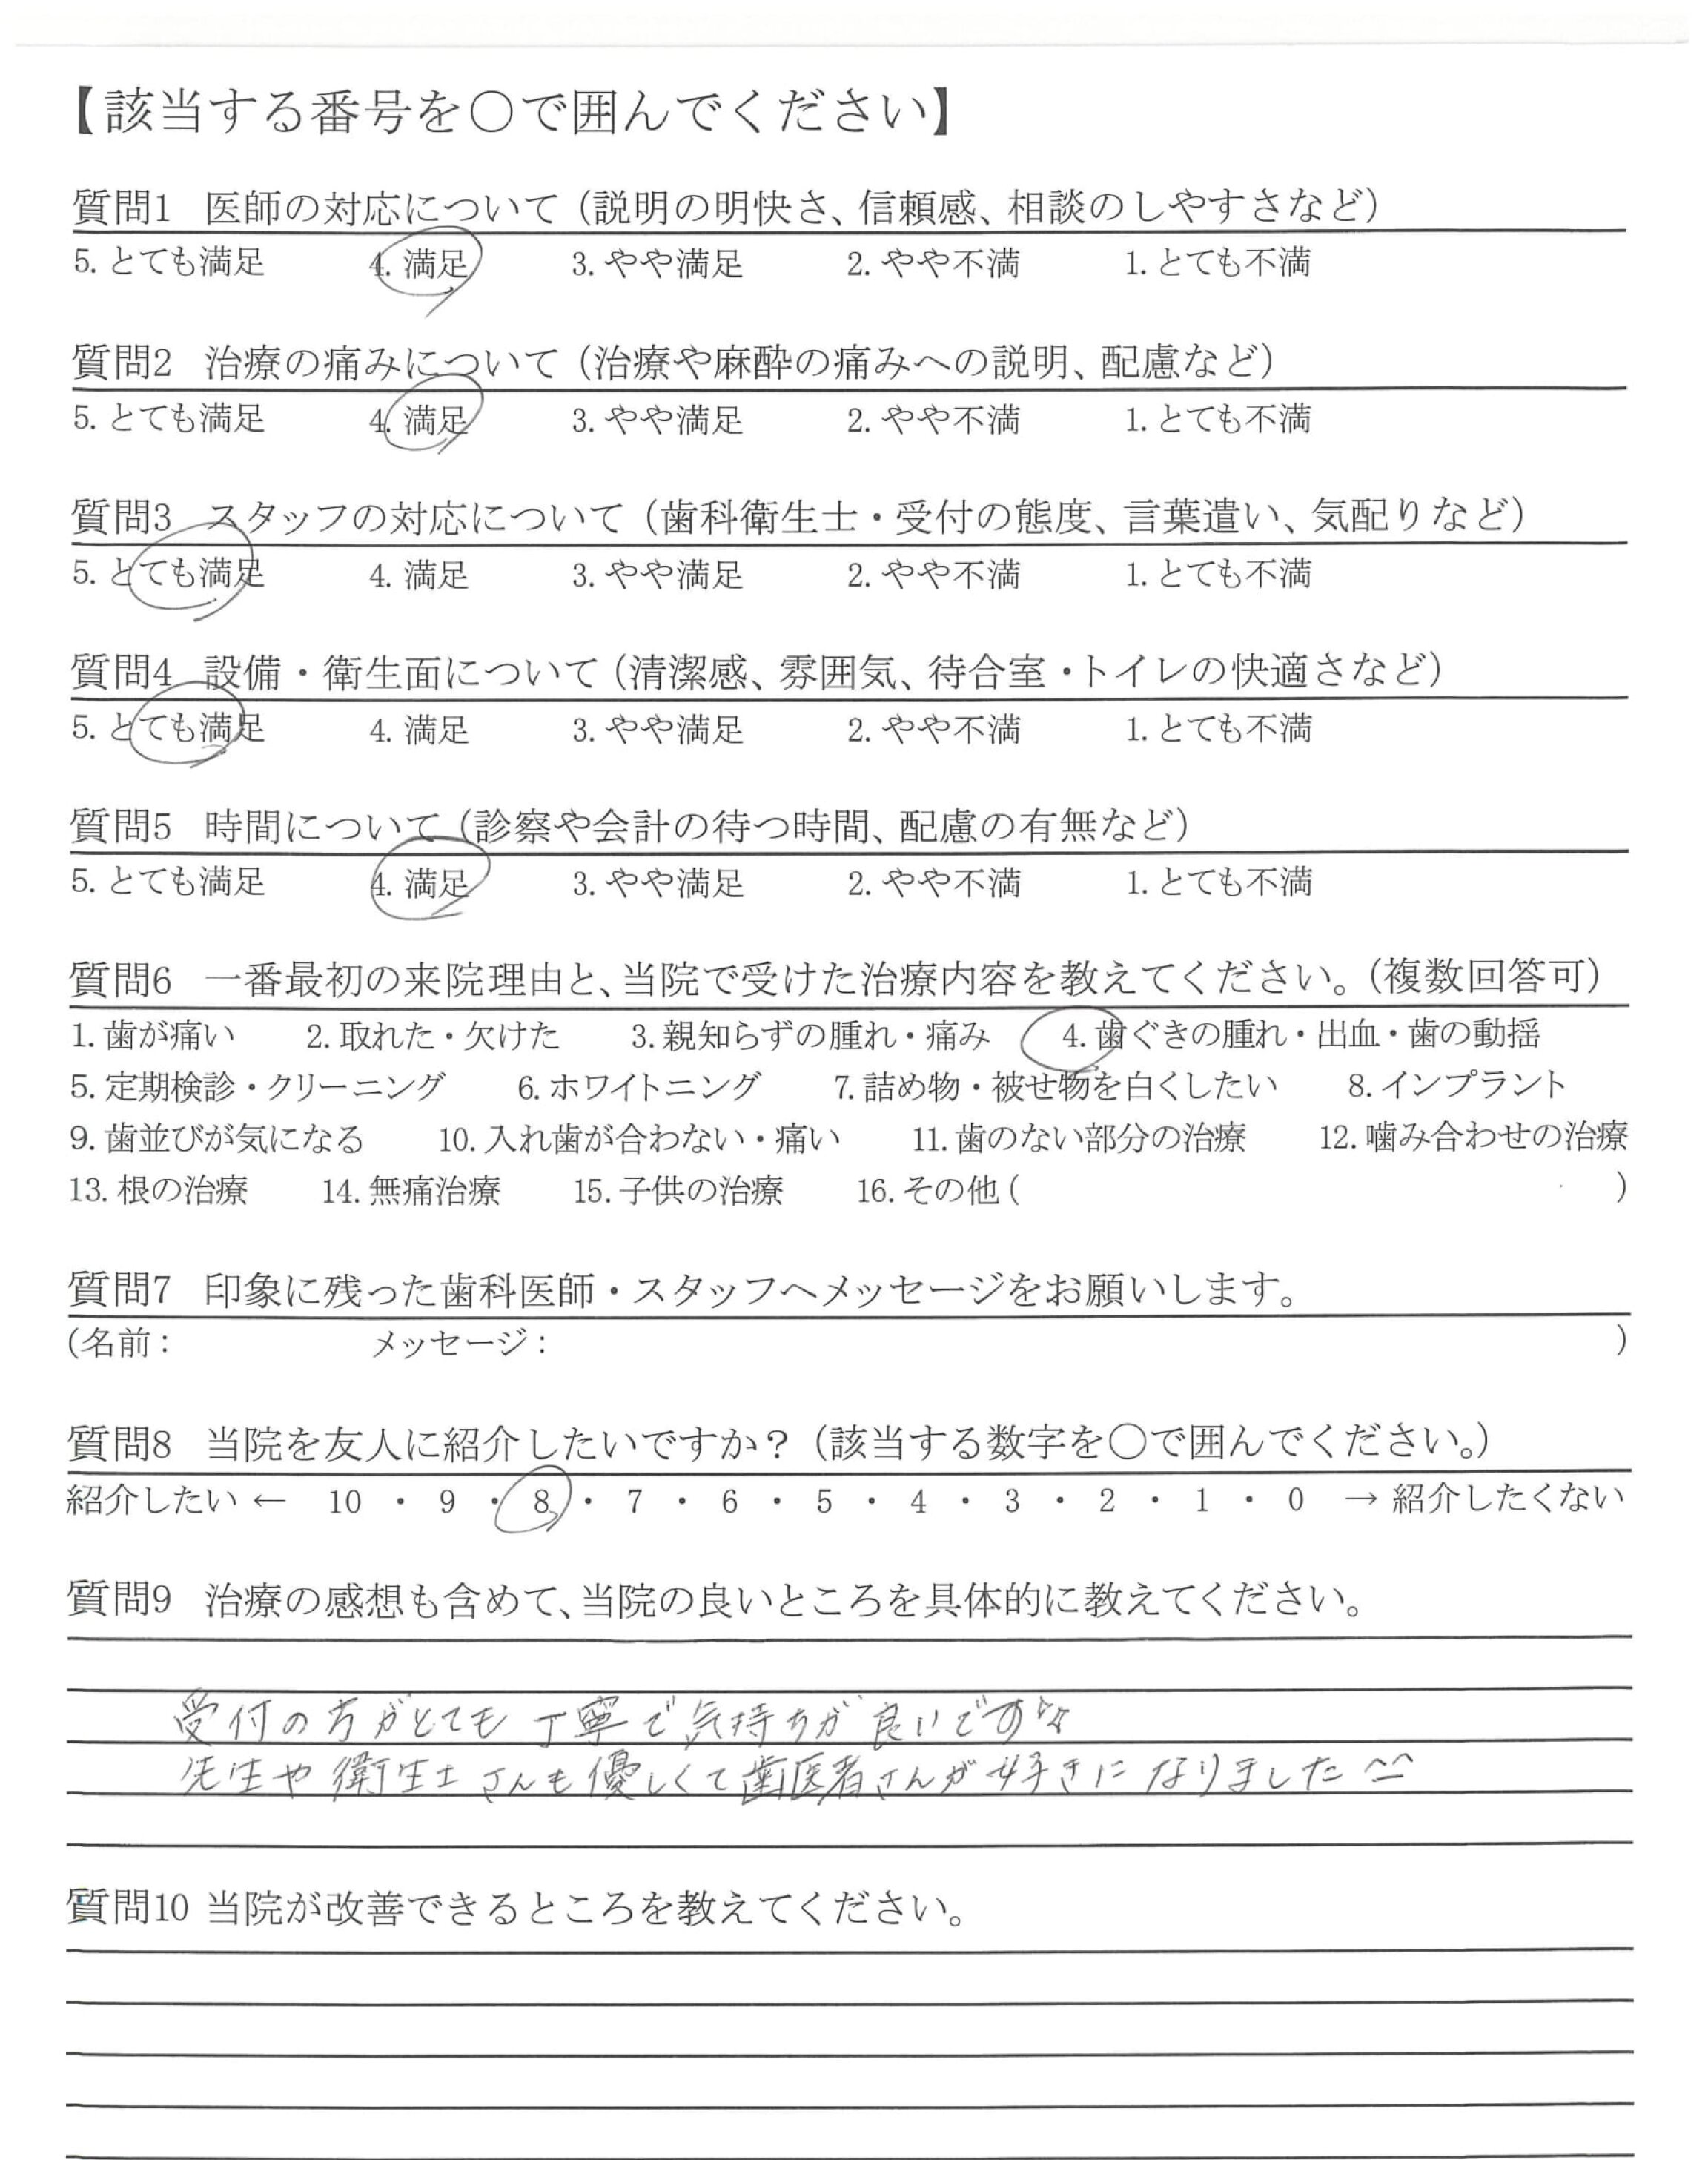 【該当する番号を○で囲んでください】
質問1 医師の対応について（説明の明快さ、信頼感、相談のしやすさなど）
5. とても満足 4. 満足 3. やや満足 2. やや不満 1. とても不満
質問2 治療の痛みについて（治療や麻酔の痛みへの説明、配慮など）
5. とても満足 4. 満足 3. やや満足 2. やや不満 1. とても不満
質問3 スタッフの対応について（歯科衛生士・受付の態度、言葉遣い、気配りなど）
5. とても満足 4. 満足 3. やや満足 2. やや不満 1. とても不満
質問4 設備・衛生面について（清潔感、雰囲気、待合室・トイレの快適さなど）
5. とても満足 4. 満足 3. やや満足 2. やや不満 1. とても不満
質問5 時間について（診察や会計の待つ時間、配慮の有無など）
5. とても満足 4. 満足 3. やや満足 2. やや不満 1. とても不満
質問6 一番最初の来院理由と、当院で受けた治療内容を教えてください。（複数回答可）
1. 歯が痛い 2. 取れた・欠けた 3. 親知らずの腫れ・痛み 4. 歯ぐきの腫れ・出血・歯の動揺
5. 定期検診・クリーニング 6. ホワイトニング 7. 詰め物・被せ物を白くしたい 8. インプラント
9. 歯並びが気になる 10. 入れ歯が合わない・痛い 11. 歯のない部分の治療 12. 噛み合わせの治療
13. 根の治療 14. 無痛治療 15. 子供の治療 16. その他（ ）
質問7 印象に残った歯科医師・スタッフへメッセージをお願いします。
（名前： メッセージ： ）
質問8 当院を友人に紹介したいですか？（該当する数字を○で囲んでください。）
紹介したい ← 10 ・ 9 ・ 8 ・ 7 ・ 6 ・ 5 ・ 4 ・ 3 ・ 2 ・ 1 ・ 0 → 紹介したくない
質問9 治療の感想も含めて、当院の良いところを具体的に教えてください。
受付の方がとても丁寧で気持ちが良いです☆
先生や衛生士さんも優しくて歯医者さんが好きになりました^^
質問10 当院が改善できるところを教えてください。